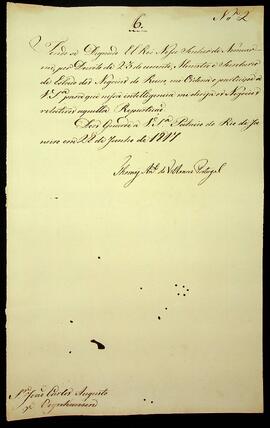 6.
Nº 2
Tendo-se Dignado El Rei Nosso Senhor de Nomear-
me, por Decreto de 23 do corrente, Ministro e Secretario
de Estado dos Negocios do Reino, me Ordena o participe a
V. Sª. para que nesta intelligencia me dirija os Negocios
relativos aquella Repartição.
Deos Guarde a V. Sª. Palacio do Rio de Ja-
neiro em 28 de Junho de 1817
Thomaz Anº. de Villanova Portugal
Snr. João Carlos Augusto
Oeynhausen